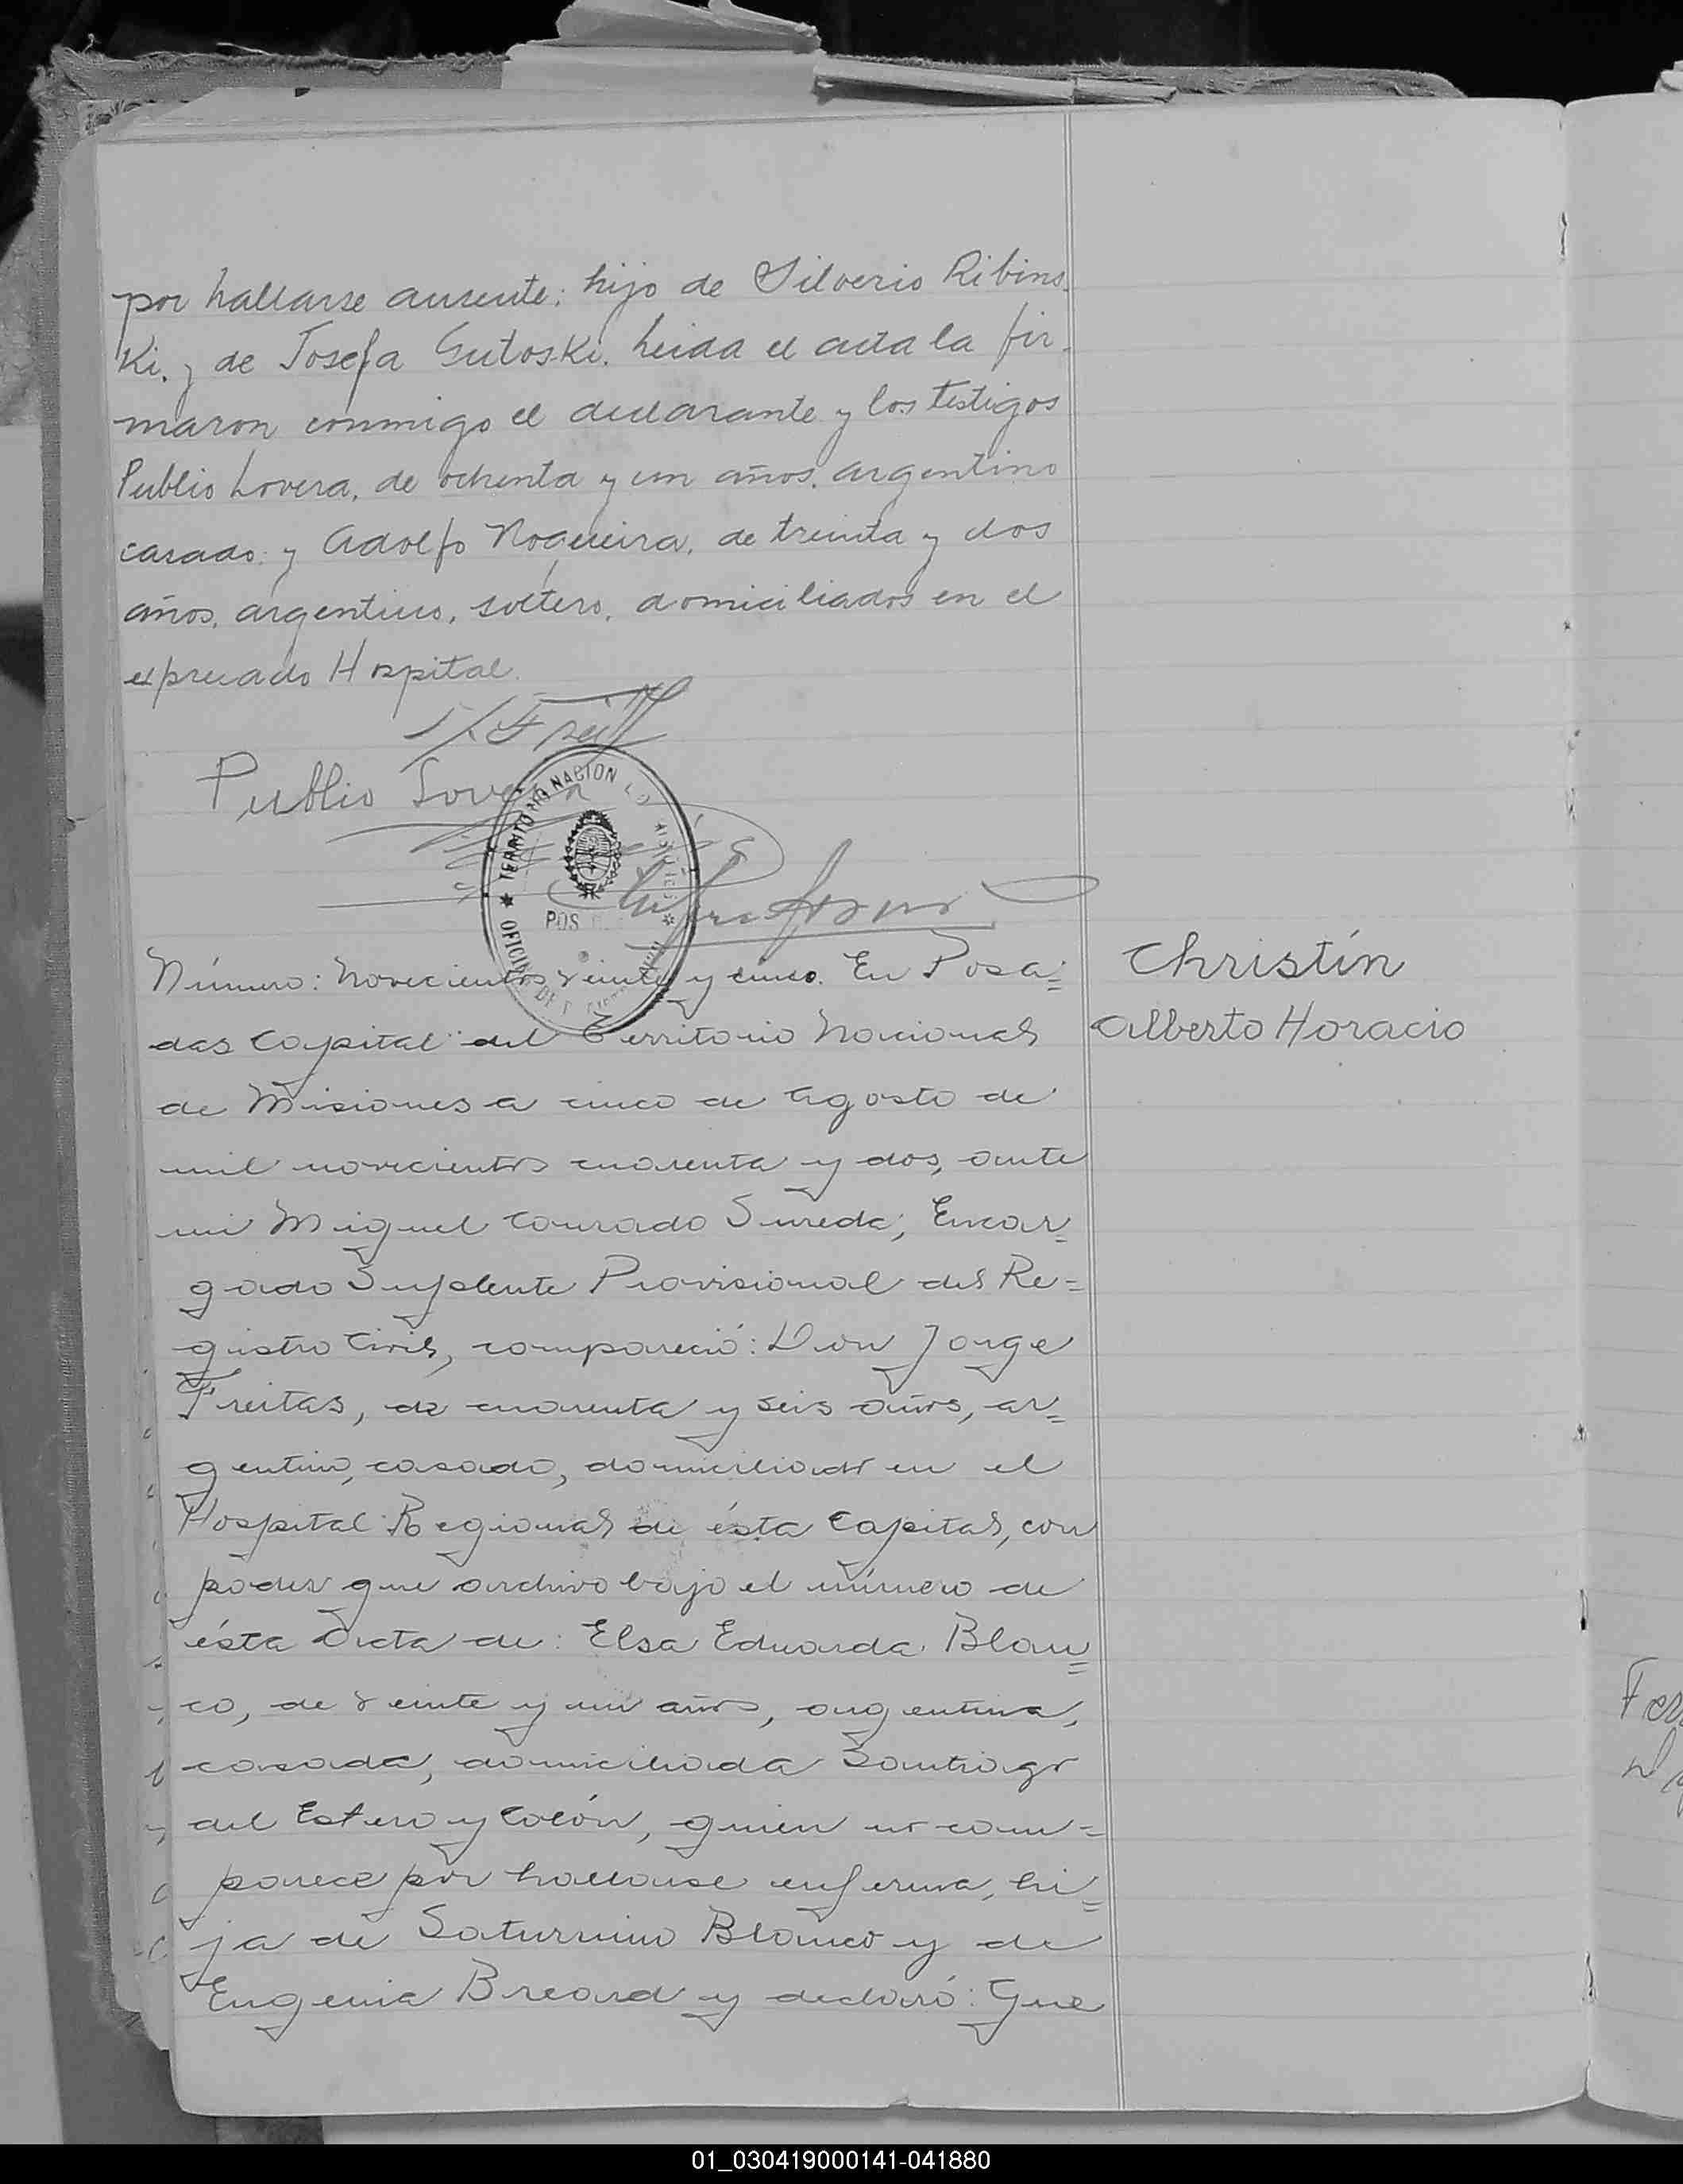 por hallarse ausente; hijo de Silverio Ribins-
ki. y de Josefa Gutoski. Leida el acta la fir-
maron conmigo el declarante y los testigos
Publio Lovera, de ochenta y un años, argentino
casado y Adolfo Nogueira, de treinta y dos
años, argentino, soltero, domiciliados en el
expresado Hospital.
Publio Lovera
TERRITORIO NACION
POS
OFICI
Número: Novecientos veinte y cinco. En Posa=
das Capital del Territorio Nacional
de Misiones a cinco de Agosto de
mil novecientos cuarenta y dos, ante
mi Miguel Conrado Sureda, Encar=
gado Suplente Provisional del Re=
gistro Civil, compareció: Don Jorge
Freitas, de cuarenta y seis años, ar=
gentino, casado, domiciliado en el
Hospital Regional de ésta Capital, con
poder que archivo bajo el número de
ésta Acta de: Elsa Eduarda Blan=
co, de veinte y un años, argentina,
casada, domiciliada Santiago
del Estero y Colón, quien no com=
parece por hallarse enferma, hi=
ja de Saturnino Blanco y de
Eugenia Breard y declaró: Que
Christín
Alberto Horacio
01_030419000141-041880